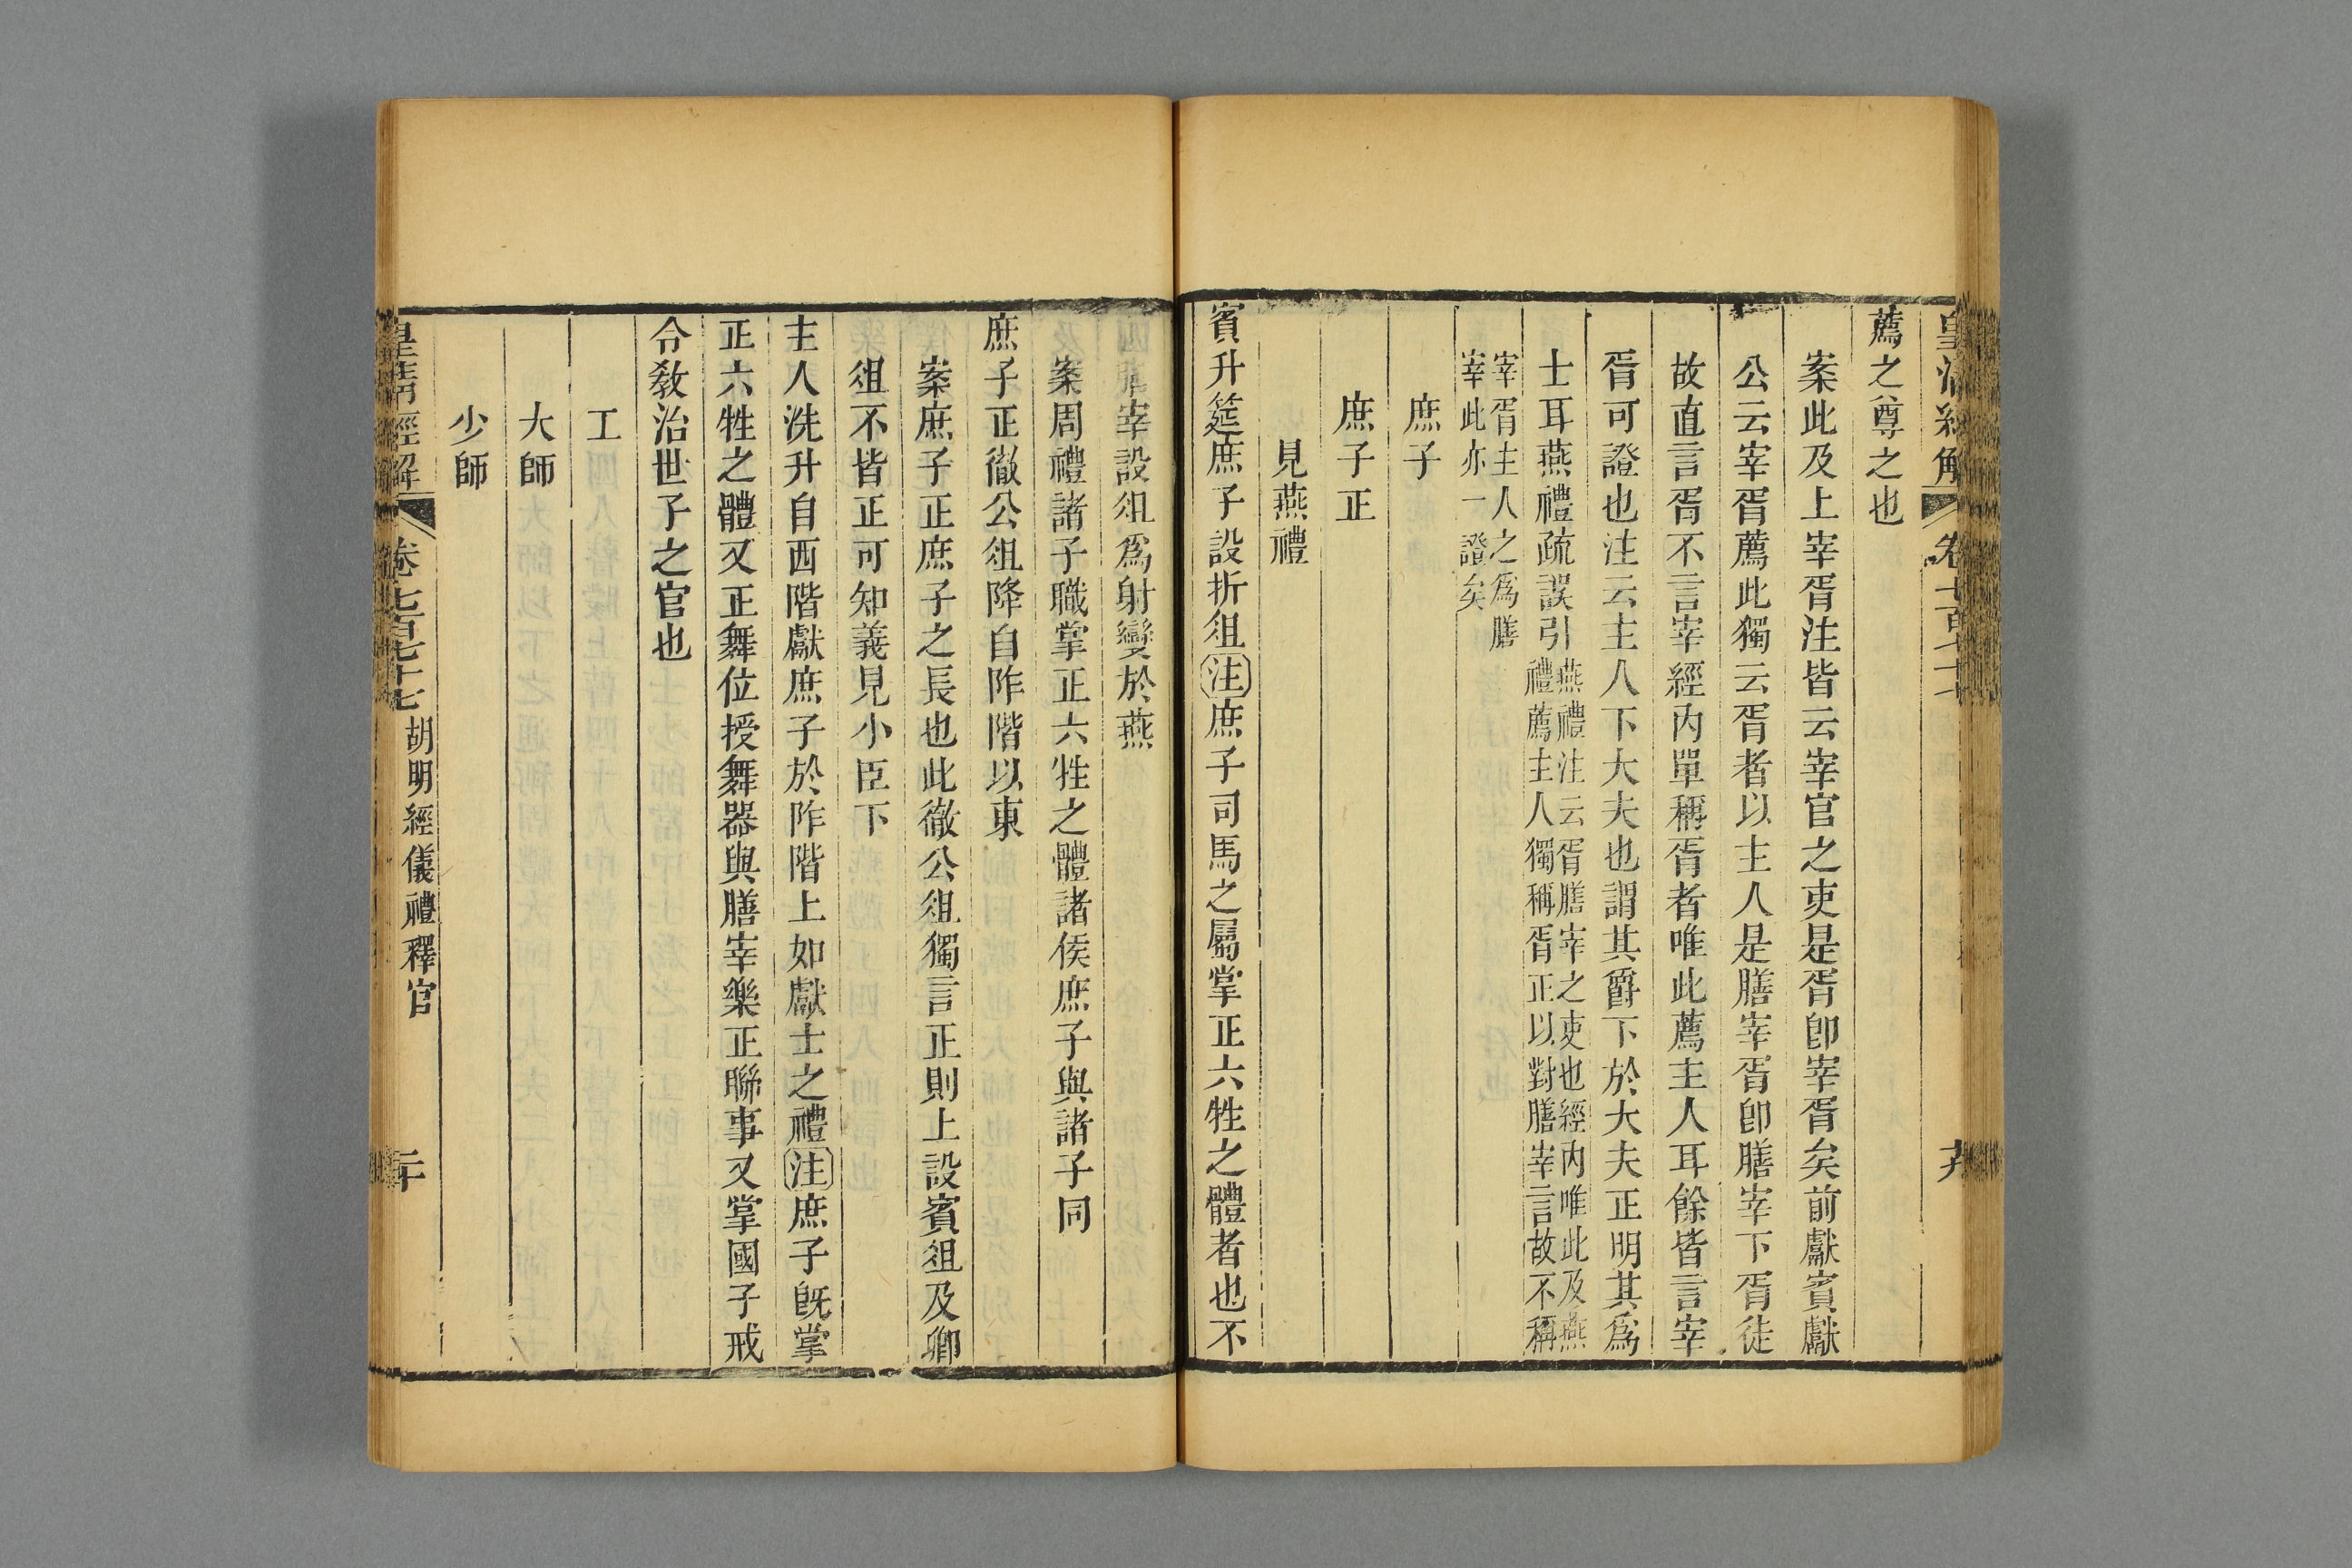 皇清經解 卷七百七十七 九
薦之尊之也
案此及上宰胥注皆云宰官之吏是胥卽宰胥矣前獻賓獻
公云宰胥薦此獨云胥者以主人是膳宰胥卽膳宰下胥徒
故直言胥不言宰經內單稱胥者唯此薦主人耳餘皆言宰
胥可證也注云主人下大夫也謂其爵下於大夫正明其爲
士耳燕禮疏誤引燕禮注云胥膳宰之吏也經內唯此及燕
禮薦主人獨稱胥正以對膳宰言故不稱
宰胥主人之爲膳
宰此亦一證矣
庶子
庶子正
見燕禮
賓升筵庶子設折俎注庶子司馬之屬掌正六牲之體者也不
使膳宰設俎爲射變於燕
案周禮諸子職掌正六牲之體諸侯庶子與諸子同
庶子正徹公俎降自阼階以東
案庶子正庶子之長也此徹公俎獨言正則上設賓俎及卿
俎不皆正可知義見小臣下
主人洗升自西階獻庶子於阼階上如獻士之禮注庶子旣掌
正六牲之體又正舞位授舞器與膳宰樂正聯事又掌國子戒
令敎治世子之官也
工
大師
少師
皇清經解 卷七百七十七 胡明經儀禮釋官 二十